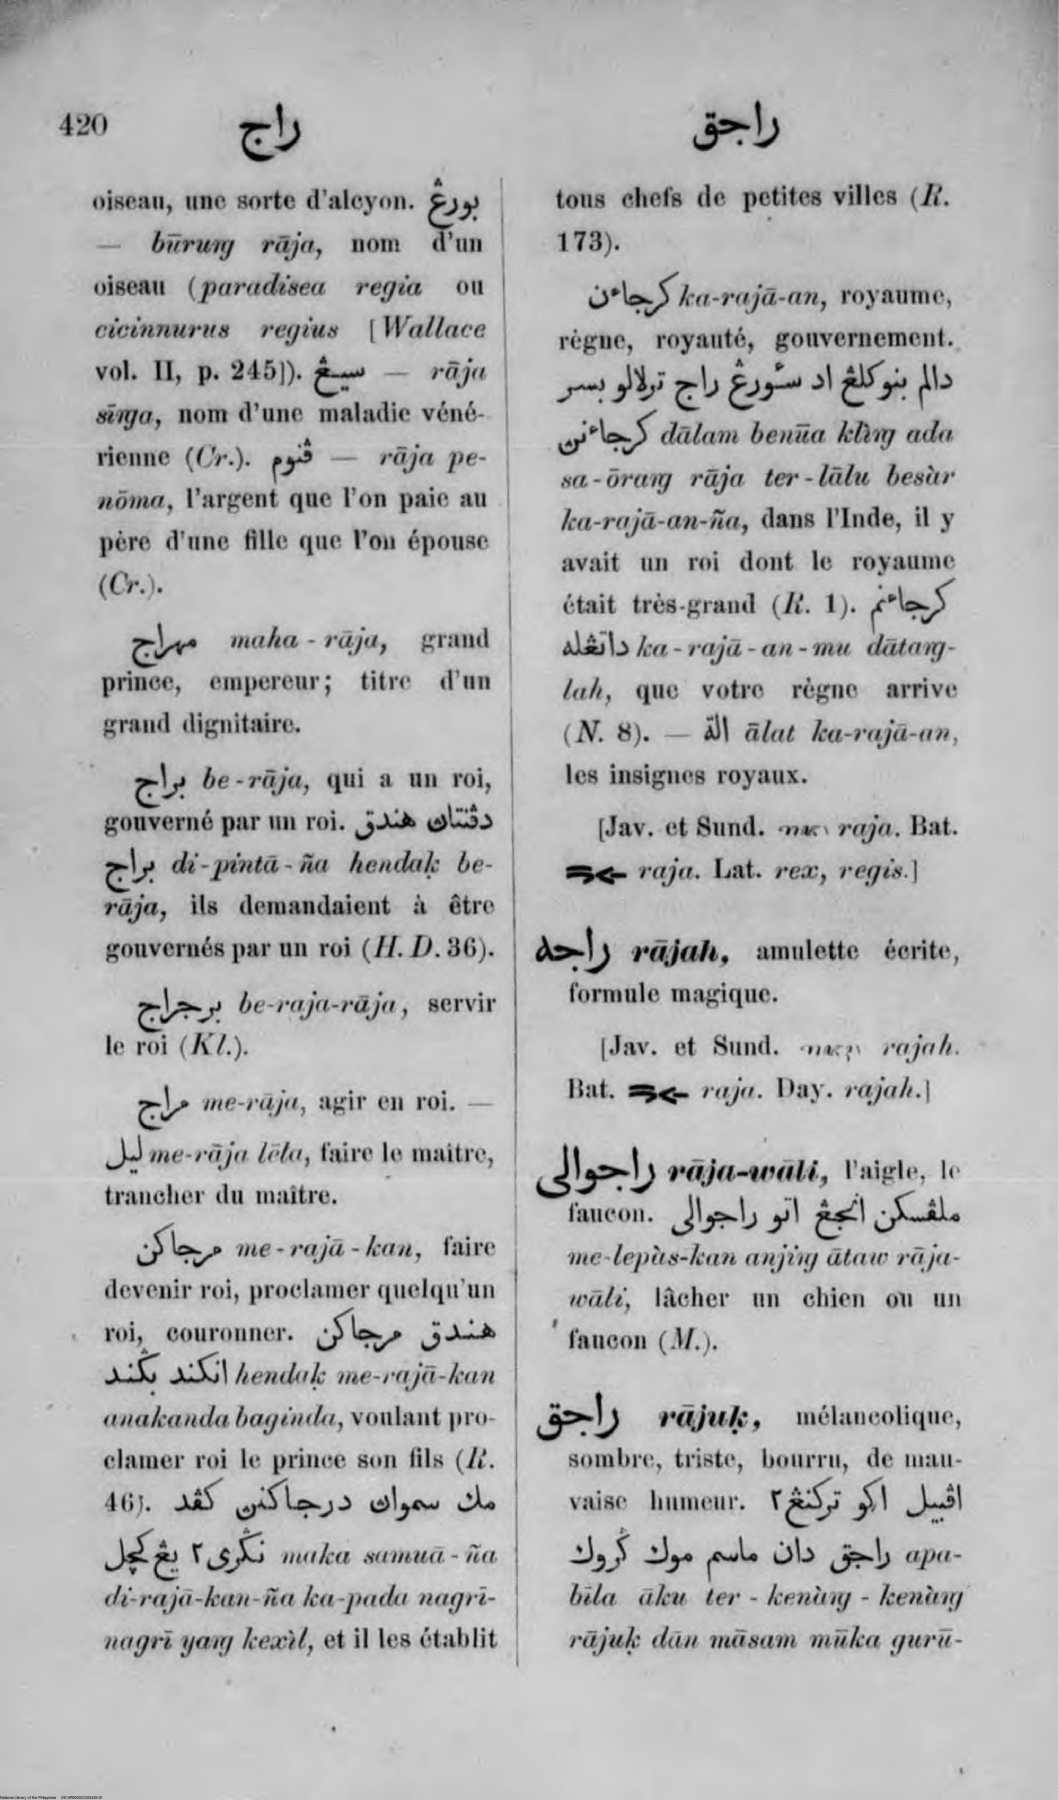 420
راج
راجق
oiseau, une sorte d'alcyon. بورڠ
— būruṅg rāja, nom d'un
oiseau (paradisea regia ou
cicinnurus regius [Wallace
vol. II, p. 245]). سيڠ — rāja
sīṅga, nom d'une maladie véné-
rienne (Cr.). ڤنوم — rāja pe-
nōma, l'argent que l'on paie au
père d'une fille que l'on épouse
(Cr.).
مهراج maha-rāja, grand
prince, empereur; titre d'un
grand dignitaire.
براج be-rāja, qui a un roi,
gouverné par un roi. دڤنتاڽ هندق
براج di-pintā-ña hendaḳ be-
rāja, ils demandaient à être
gouvernés par un roi (H. D. 36).
برجراج be-raja-rāja, servir
le roi (Kl.).
مراج me-rāja, agir en roi. —
ليل me-rāja lēla, faire le maître,
trancher du maître.
مرجاكن me-rajā-kan, faire
devenir roi, proclamer quelqu'un
roi, couronner. هندق مرجاكن
انكند بݢند hendaḳ me-rajā-kan
anakanda baginda, voulant pro-
clamer roi le prince son fils (R.
46). مك سموان درجاكنن كڤد
نݢري٢ يڠ كچل maka samuā-ña
di-rajā-kan-ña ka-pada nagrī-
nagrī yaṅg kexìl, et il les établit
tous chefs de petites villes (R.
173).
كرجاءن ka-rajā-an, royaume,
règne, royauté, gouvernement.
دالم بنوكلڠ اد سئورڠ راج ترلالو بسر
كرجاءنن dālam benūa klìṅg ada
sa-ōraṅg rāja ter-lālu besàr
ka-rajā-an-ña, dans l'Inde, il y
avait un roi dont le royaume
était très-grand (R. 1). كرجاءنم
داتڠله ka-rajā-an-mu dātaṅg-
lah, que votre règne arrive
(N. 8). — الة ālat ka-rajā-an,
les insignes royaux.
[Jav. et Sund. raja. Bat.
raja. Lat. rex, regis.]
راجه rājah, amulette écrite,
formule magique.
[Jav. et Sund. rajah.
Bat. raja. Day. rajah.]
راجوالي rāja-wāli, l'aigle, le
faucon. ملڤسكن انجڠ اتو راجوالي
me-lepàs-kan anjìṅg ātaw rāja-
wāli, lâcher un chien ou un
faucon (M.).
راجق rājuḳ, mélancolique,
sombre, triste, bourru, de mau-
vaise humeur. اڤبيل اكو تركنڠ٢
راجق دان ماسم موك ݢروڽ apa-
bīla āku ter-kenàṅg-kenàṅg
rājuḳ dān māsam mūka gurū-